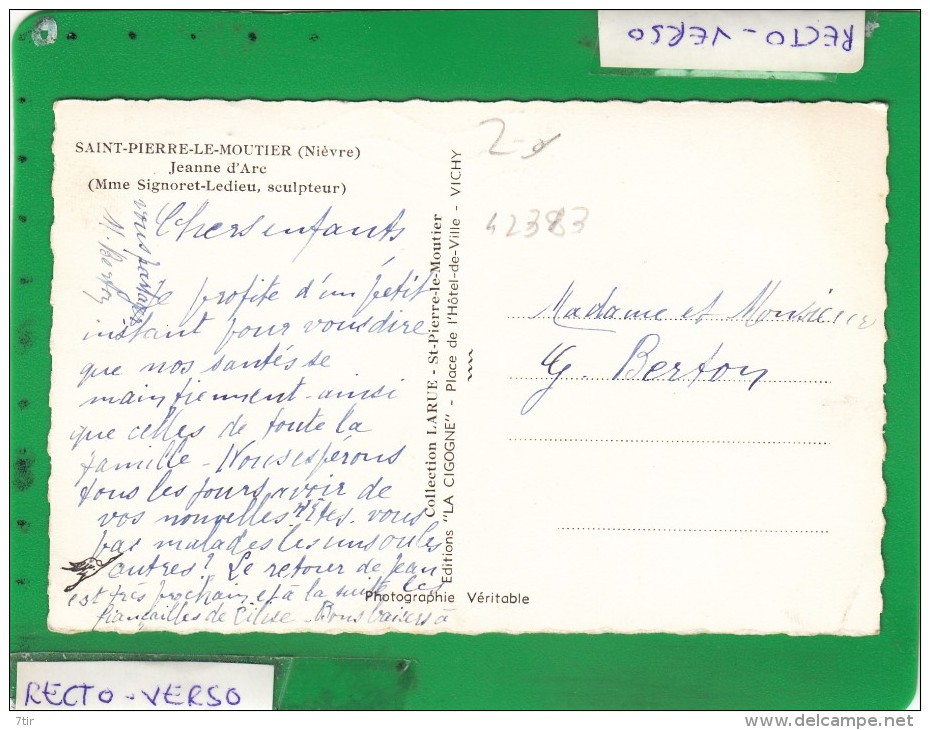 RECTO - VERSO
SAINT-PIERRE-LE-MOUTIER (Nièvre)
Jeanne d'Arc
(Mme Signoret-Ledieu, sculpteur)
Chers enfants
Je profite d'un petit
instant pour vous dire
que nos santés se
maintiennent ainsi
que celles de toute la
famille - Nous espérons
tous les jours avoir de
vos nouvelles Etes vous
pas malades les uns ou les
autres ? Le retour de Jean
est très prochain et à la suite les
fiançailles de - Bons baisers à
vous partager
M. Berton
Collection LARUE - St-Pierre-le-Moutier
Editions "LA CIGOGNE" - Place de l'Hôtel-de-Ville - VICHY
Photographie Véritable
42383
Madame et Monsieur
G. Berton
RECTO - VERSO
7tir
www.delcampe.net